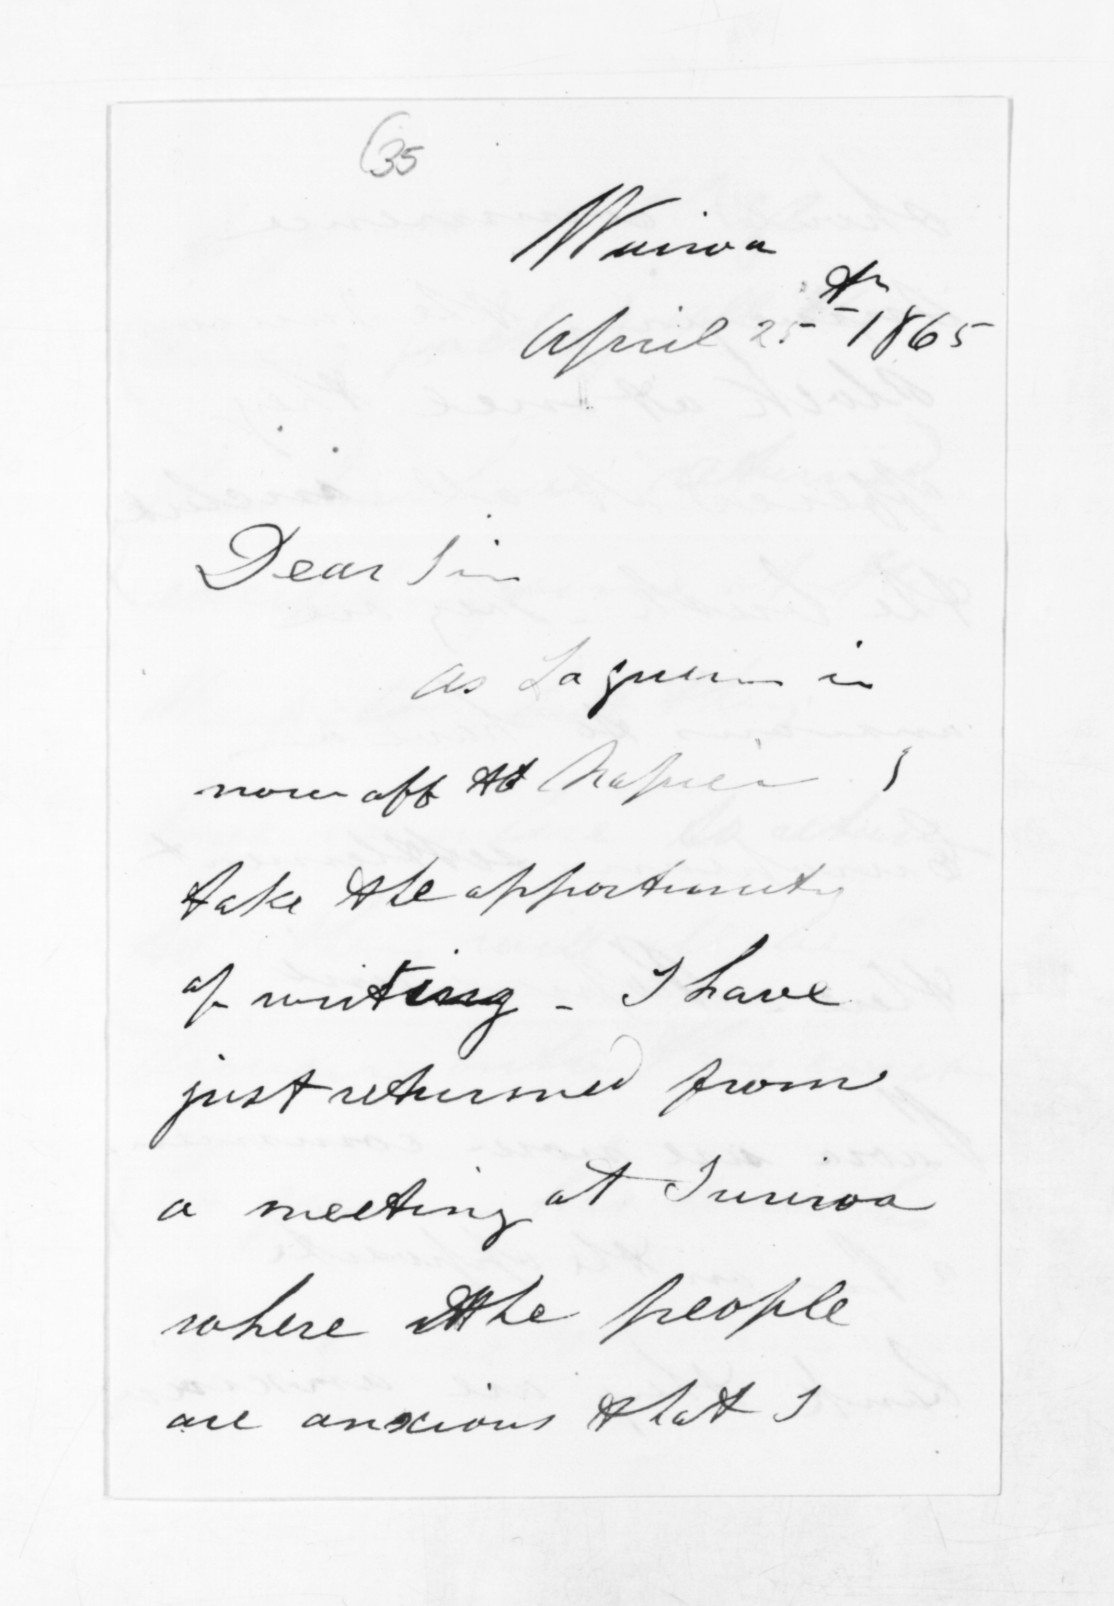 (35
Wairoa
April 25th 1865
Dear Sir
as in
now off to Napier I
take the opportunity
of writing _ I have
just returned from
a meeting at Turiroa
where the people
are anxious that I